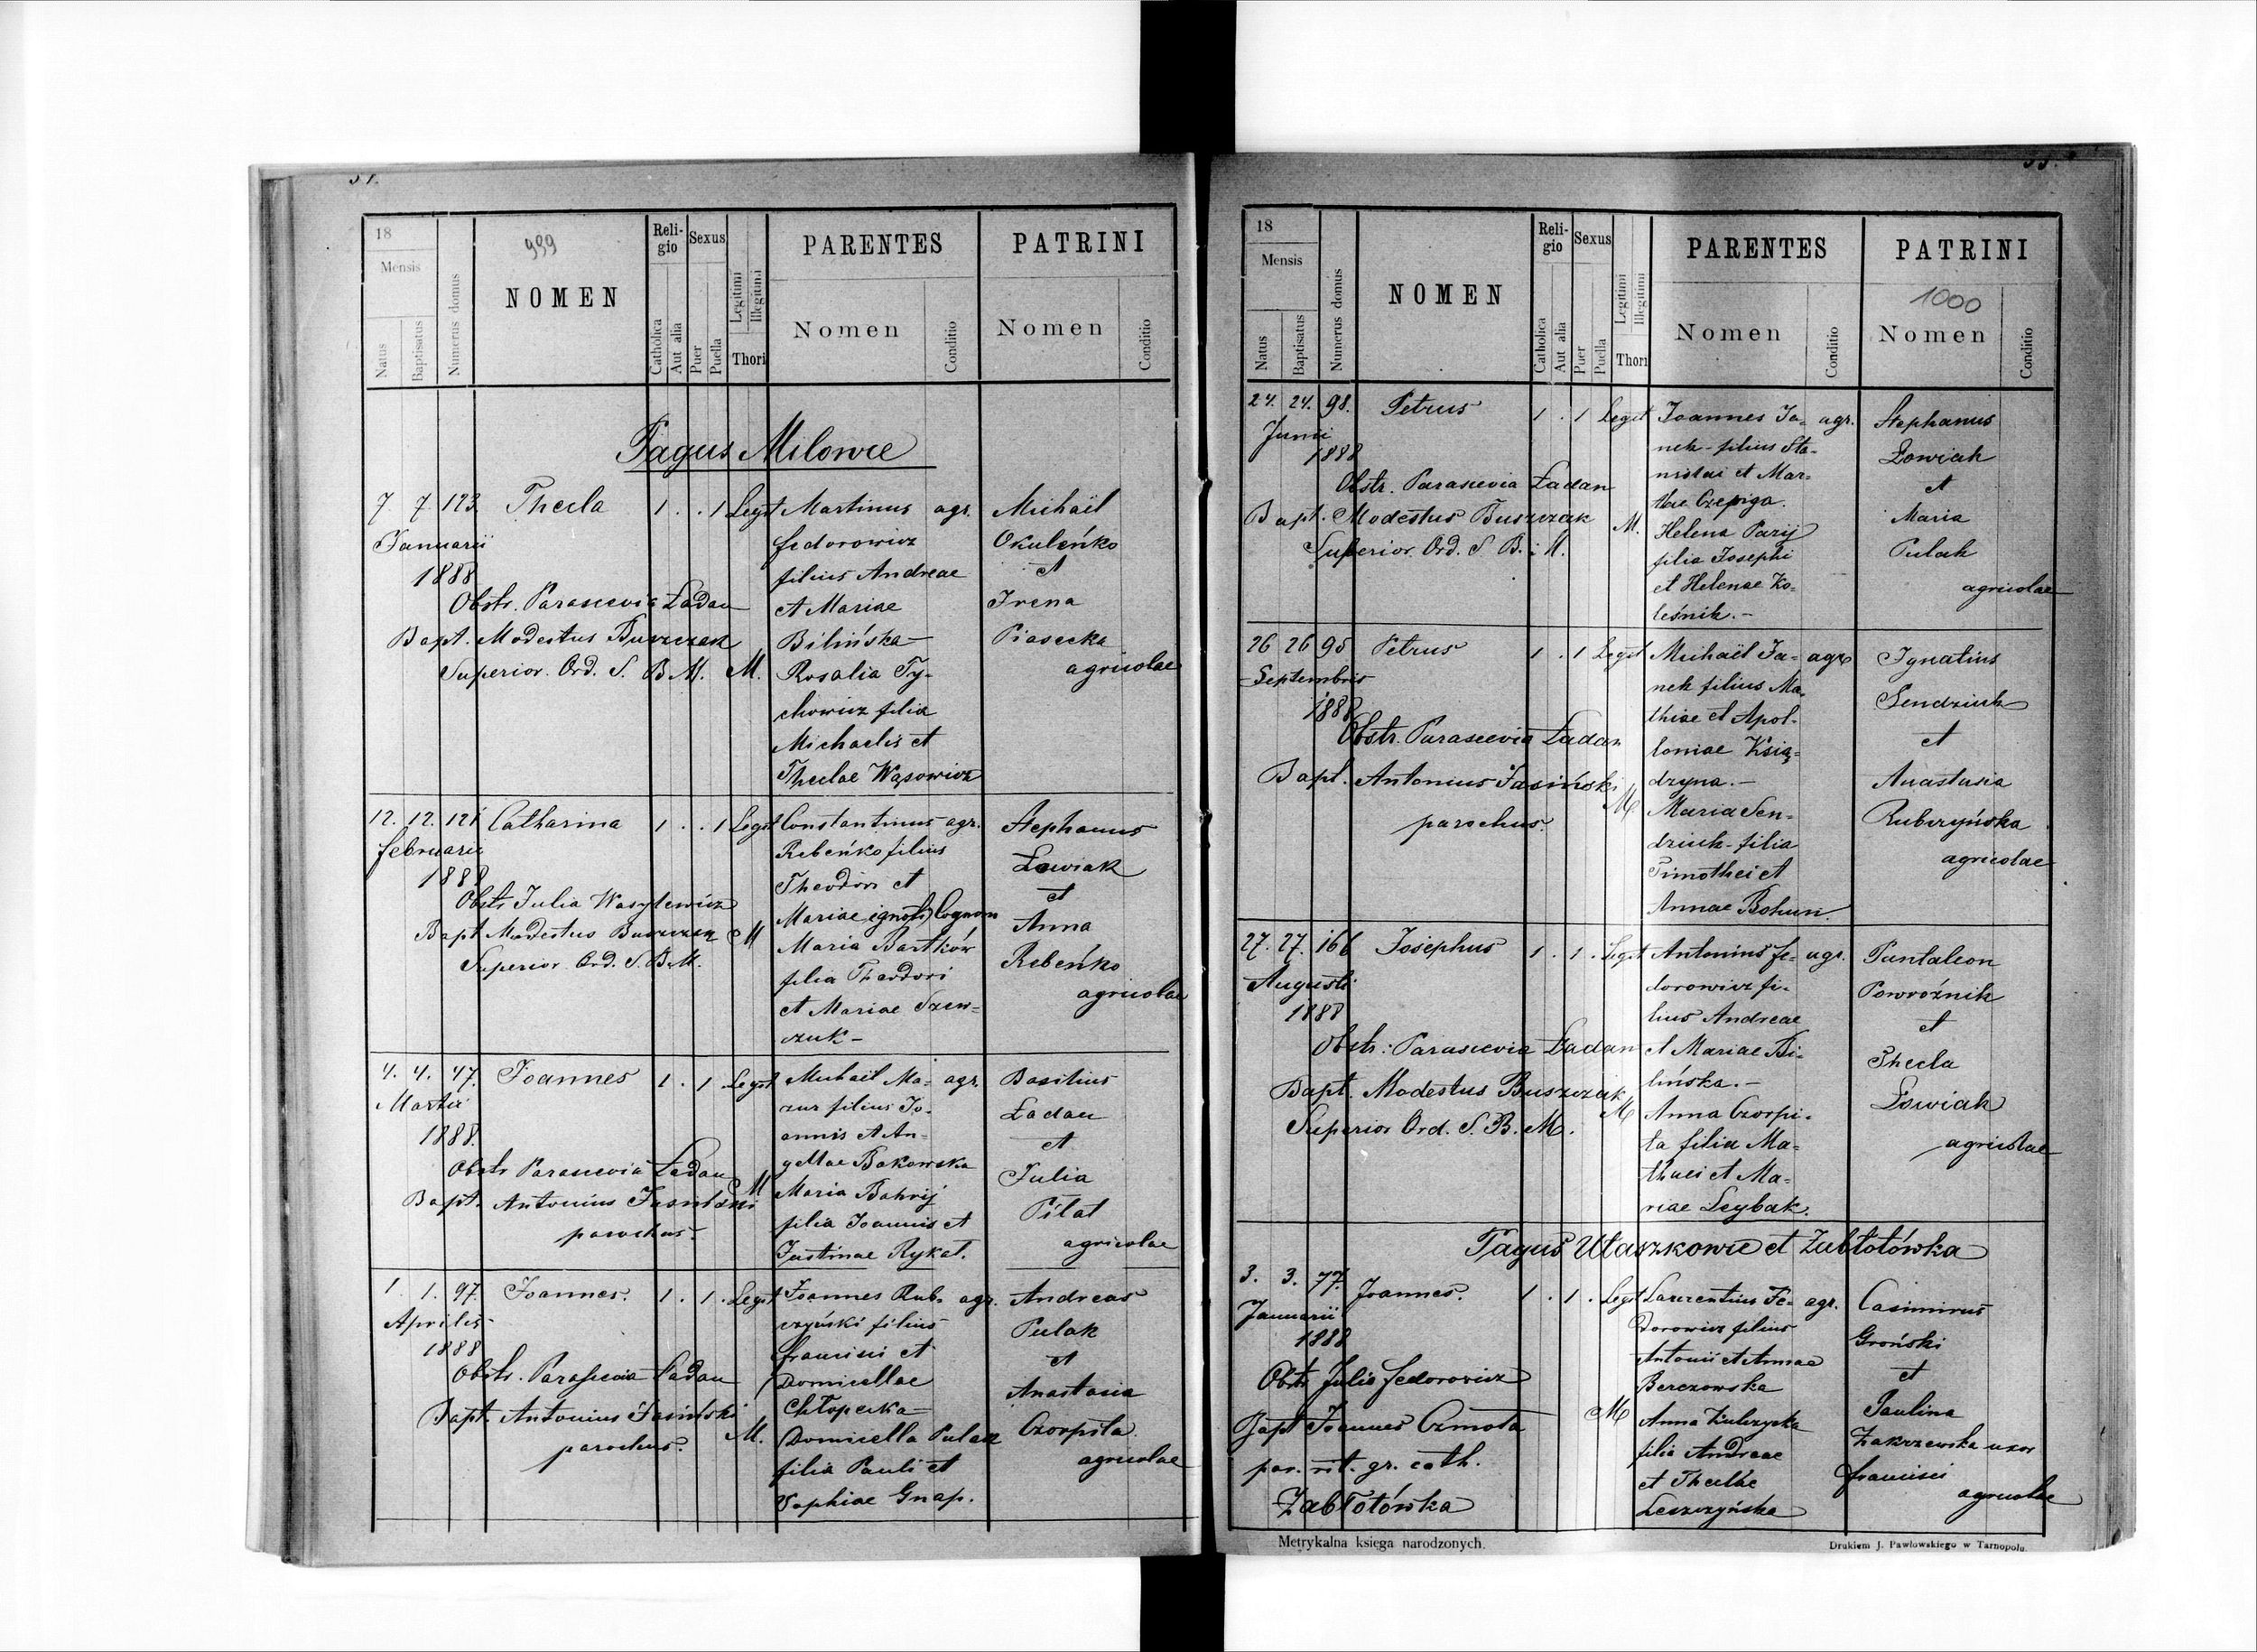 18
Mensis
Natus
Baptisatus
Numerus domus
999
NOMEN
Religio
Catholica
Aut alia
Sexus
Puer
Puella
Legitimi
Illegitimi
Thori
PARENTES
Nomen
Conditio
PATRINI
Nomen
Conditio
Pagus Milowce
7 7 123. Thecla 1 . . 1 Legit
Januarii
1888
Obstr. Parascevia Ładan
Bapt. Modestus Buszczak
Superior. Ord. S. B M. M.
Martinus agr.
Fedorowicz
filius Andreae
et Mariae
Bilińska –
Rosalia Ty-
chowicz filia
Michaelis et
Theclae Wąsowicz
Michaël
Okuleńko
et
Irena
Piasecka
agricolae
12. 12. 121 Catharina 1 . . 1 Legit
Februarii
1888
Obstr Julia Wasylewicz
Bapt Modestus Buszczak M
Superior Ord. S. B. M.
Constantinus agr.
Rebeńko filius
Theodori et
Mariae ignoti Cognom
Maria Bartków
filia Theodori
et Mariae Szew=
czuk –
Stephanus
Łowiak
et
Anna
Rebeńko
agricolae
4. 4. 47. Joannes 1 . 1 . Legit
Martii
1888.
Obstr Parascevia Ładan
Bapt. Antonius Jasiński M
parochus.
Michaël Ma= agr.
zur filius Jo-
annis et An-
gellae Bakowska
Maria Bahrij
filia Joannis et
Justinae Rykat.
Basilius
Ładan
et
Julia
Pilat
agricolae
1. 1. 97. Joannes. 1 . 1 . Legit
Aprilis
1888
Obstr. Parascevia Ładan
Bapt. Antonius Jasiński
parochus. M.
Joannes Rub- agr.
czyński filius
Francisci et
Domicellae
Chłopecka –
Domicella Pulak
filia Pauli et
Sophiae Gnap.
Andreas
Pulak
et
Anastasia
Czorpita
agricolae
18
Mensis
Natus
Baptisatus
Numerus domus
NOMEN
Religio
Catholica
Aut alia
Sexus
Puer
Puella
Legitimi
Illegitimi
Thori
PARENTES
Nomen
Conditio
PATRINI
1000
Nomen
Conditio
24. 24. 98. Petrus 1 . 1 Legit
Junii
1888
Obstr. Parascevia Ładan
Bapt. Modestus Buszczak M.
Superior. Ord. S. B. M.
Joannes Ja= agr.
nek filius Sta-
nislai et Mar-
thae Czepiga.
Helena Parij
filia Josephi
et Helenae Ko-
leśnik. –
Stephanus
Łowiak
et
Maria
Pulak
agricolae
26 26 95 Petrus 1 . 1 Legit
Septembris
1888
Obstr. Parascevia Ładan
Bapt. Antonius Jasiński M.
parochus.
Michaël Ja- agr
nek filius Ma-
thiae et Apol-
loniae Ksią-
dzyna. –
Maria Sen-
dziuk filia
Timothei et
Annae Bohun.
Ignatius
Sendziuk
et
Anastasia
Rubczyńska
agricolae
27. 27. 166 Josephus 1 . 1 . Legit
Augusti
1888
Obstr: Parascevia Ładan
Bapt. Modestus Buszczak
Superior Ord. S. B. M. M
Antonius Fe- agr.
dorowicz fi-
lius Andreae
et Mariae Bi-
lińska. –
Anna Czorpi-
ta filia Ma-
thaei et Ma-
riae Leybak.
Pantaleon
Powroźnik
et
Thecla
Łowiak
agricolae
Pagus Ułaszkowce et Zabłotówka
3. 3. 77. Joannes. 1 . 1 . Legit
Januarii
1888
Obstr Julia Fedorowicz
Bapt Joannes Czmola
par. rit. gr. cath.
Zabłotówka
M
Laurentius Fe- agr.
dorowicz filius
Antonii et Annae
Berezowska
Anna Kulczycka
filia Andreae
et Theclae
Leszczyńska
Casimirus
Groński
et
Paulina
Zakrzewska uxor
Francisci
agricolae
Metrykalna księga narodzonych.
Drukiem J. Pawłowskiego w Tarnopolu.